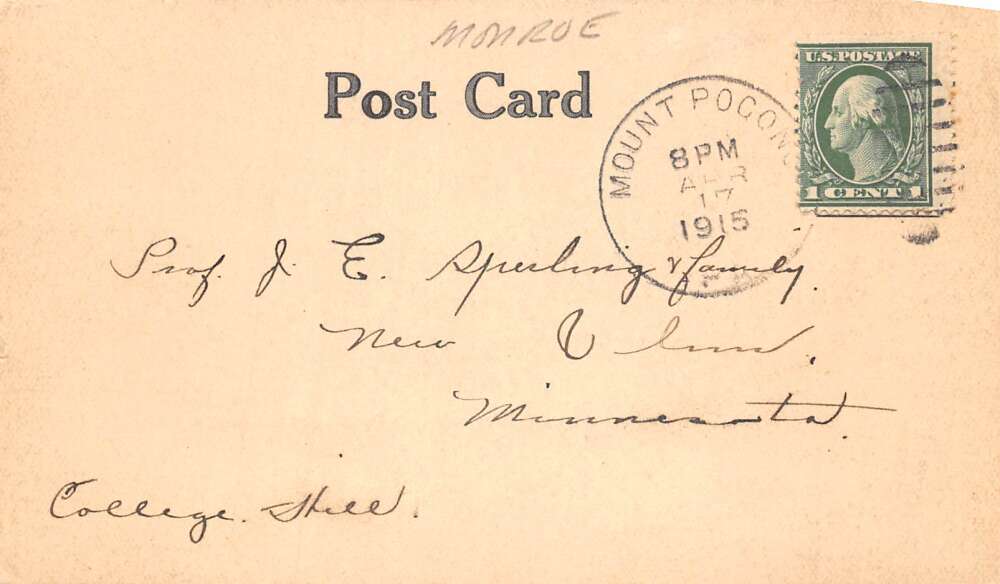 MONROE
Post Card
U.S. POSTAGE
1 CENT 1
MOUNT POCONO
8 PM
APR
17
1915
Prof. J. E. Sperling & family.
New Ulm.
Minnesota.
College Hill.